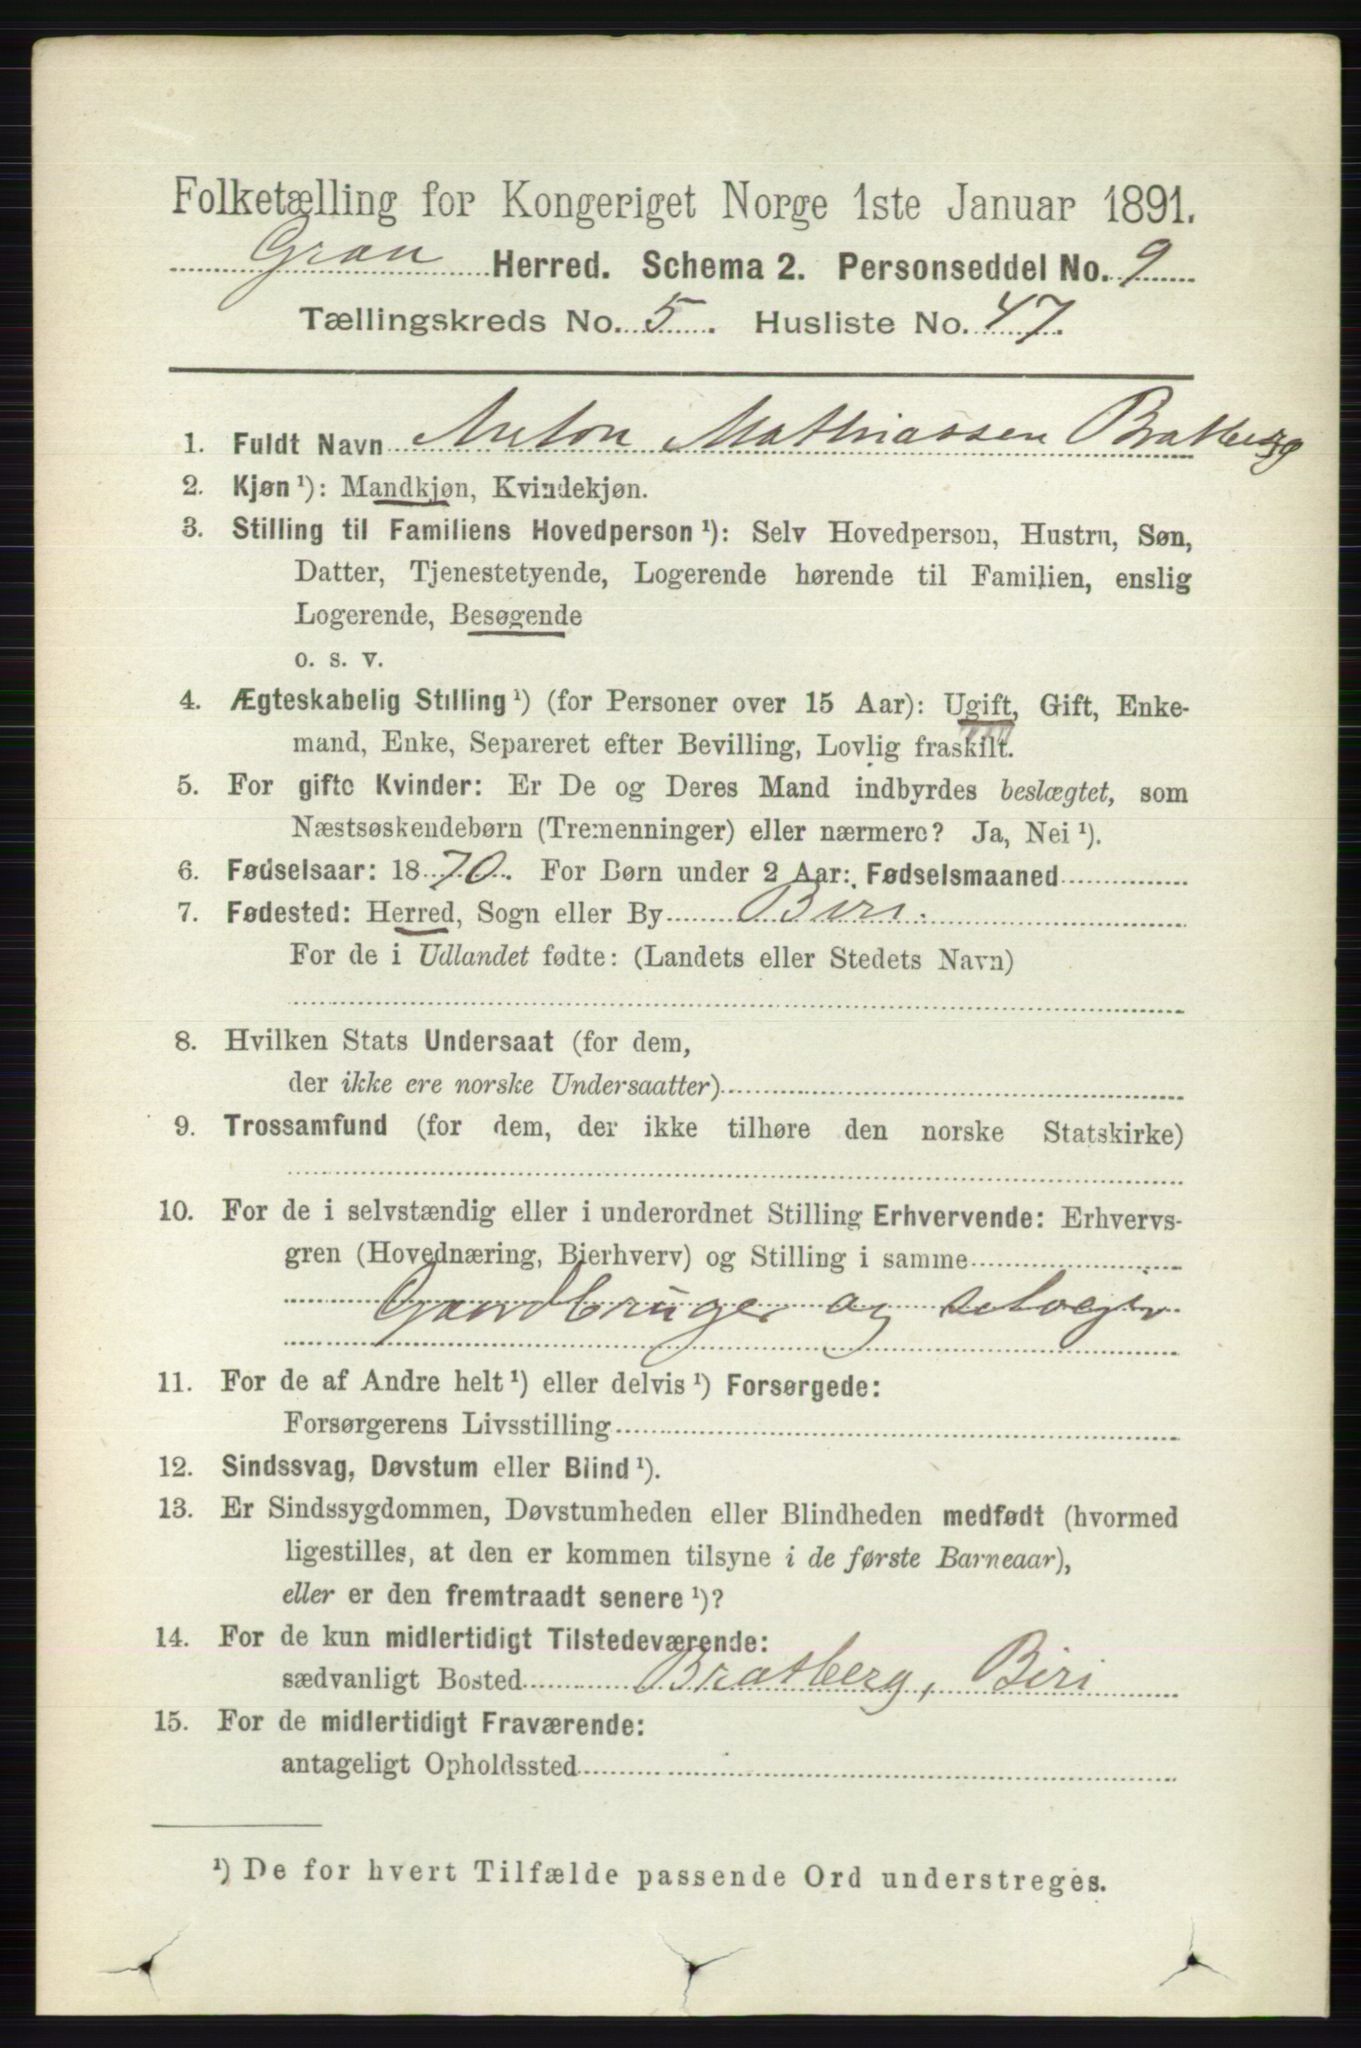 Folketælling for Kongeriget Norge 1ste Januar 1891.
Gran Herred. Schema 2. Personseddel No. 9
Tællingskreds No. 5. Husliste No. 47.
1. Fuldt Navn Anton Mathiassen Bratberg
2. Kjøn ¹): Mandkjøn, Kvindekjøn.
3. Stilling til Familiens Hovedperson ¹): Selv Hovedperson, Hustru, Søn,
Datter, Tjenestetyende, Logerende hørende til Familien, enslig
Logerende, Besøgende
o. s. v.
4. Ægteskabelig Stilling ¹) (for Personer over 15 Aar): Ugift, Gift, Enke-
mand, Enke, Separeret efter Bevilling, Lovlig fraskilt.
5. For gifte Kvinder: Er De og Deres Mand indbyrdes beslægtet, som
Næstsøskendebørn (Tremenninger) eller nærmere? Ja, Nei ¹).
6. Fødselsaar: 1870. For Børn under 2 Aar: Fødselsmaaned
7. Fødested: Herred, Sogn eller By Biri.
For de i Udlandet fødte: (Landets eller Stedets Navn)
8. Hvilken Stats Undersaat (for dem,
der ikke ere norske Undersaatter)
9. Trossamfund (for dem, der ikke tilhøre den norske Statskirke)
10. For de i selvstændig eller i underordnet Stilling Erhvervende: Erhvervs-
gren (Hovednæring, Bierhverv) og Stilling i samme
Gaardbruger og selveier
11. For de af Andre helt ¹) eller delvis ¹) Forsørgede:
Forsørgerens Livsstilling
12. Sindssvag, Døvstum eller Blind ¹).
13. Er Sindssygdommen, Døvstumheden eller Blindheden medfødt (hvormed
ligestilles, at den er kommen tilsyne i de første Barneaar),
eller er den fremtraadt senere ¹)?
14. For de kun midlertidigt Tilstedeværende:
sædvanligt Bosted Bratberg, Biri
15. For de midlertidigt Fraværende:
antageligt Opholdssted
¹) De for hvert Tilfælde passende Ord understreges.